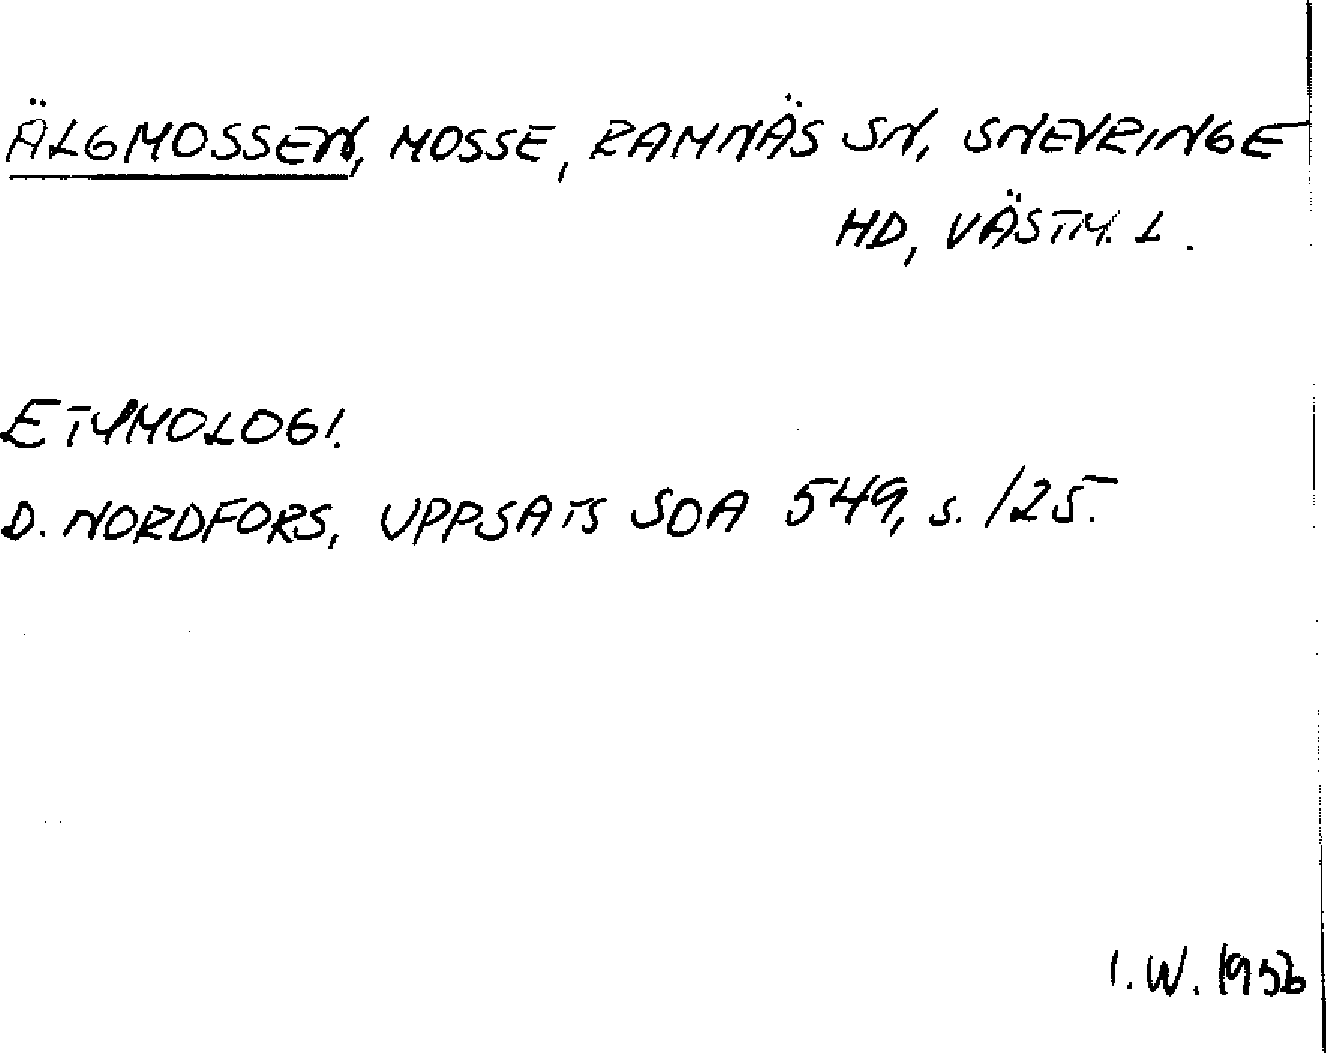 ÄLGMOSSEN, MOSSE, RAMNÄS SN, SNEVRINGE
HD, VÄSTM. L.
ETYMOLOGI.
D. NORDFORS, UPPSATS SOA 549, S. 125.
I. W. 1956